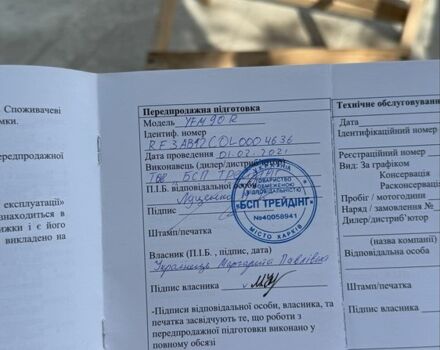 Споживачеві
мки.
ередпродажної
експлуатації»
знаходиться в
ижки і є його
викладено на
Передпродажна підготовка
Модель YFM 90 R
Ідентиф. номер
Дата проведення 01.02.2021
Виконавець (дилер/дистриб'ютор)
ТОВ БСП
П.І.Б. відповідальної особи
Луценко
Підпис
Штамп/печатка
Власник (П.І.Б. , підпис, дата)
Маргарита Павлівна
Підпис власника
-Підписи відповідальної особи, власника, та
печатка засвідчують те, що роботи з
передпродажної підготовки виконано у
повному обсязі
«БСП ТРЕЙДІНГ»
№40058941
МІСТО ХАРКІВ
Технічне обслуговуванн
Дата
Ідентифікаційний номер
Реєстраційний номер
Вид: За графіком
Консервація
Расконсерваці
Пробіг / мотогодини
Наряд / замовлення №
Дилер/дистриб'ютор
(назва компанії)
Відповідальна особа
Штамп/печатка
Власник